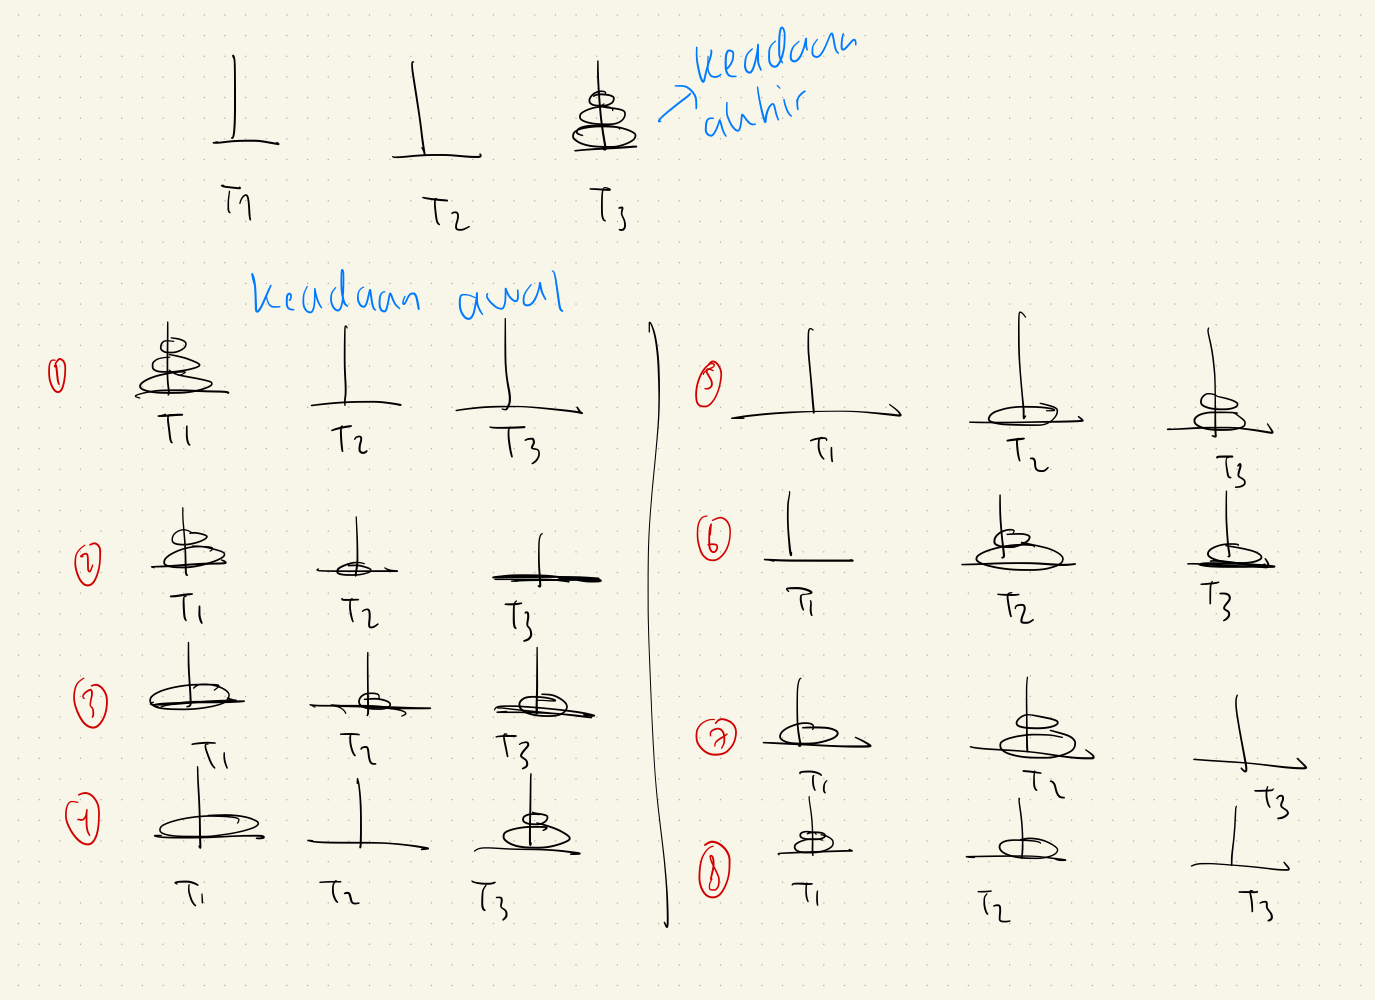 keadaan
akhir
T1 T2 T3
keadaan awal
1
T1 T2 T3
2
T1 T2 T3
3
T1 T2 T3
4
T1 T2 T3
5
T1 T2 T3
6
T1 T2 T3
7
T1 T2 T3
8
T1 T2 T3